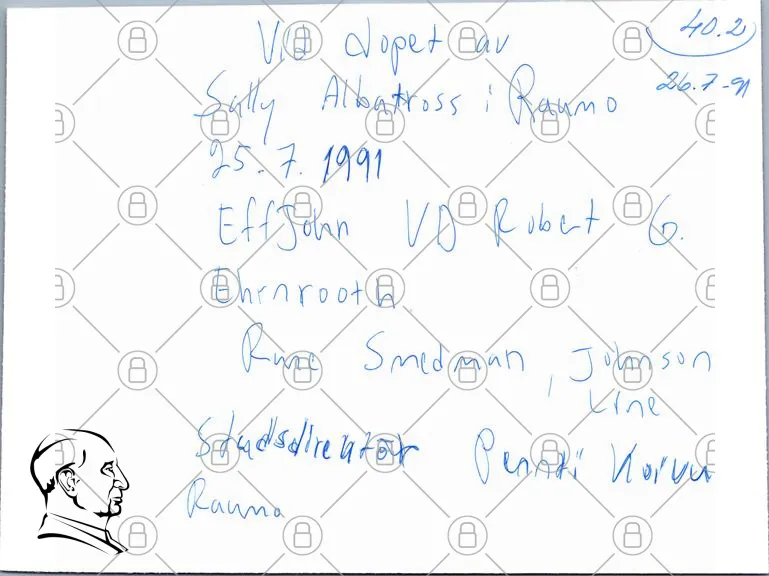 Vid dopet av
40.2
26.7-91
Sally Albatross i Raumo
25.7.1991
EffJohn VD Robert G.
Ehrnrooth
Rune Smedman, Johnson
Line
Stadsdirektör Pennti Koivu
Rauma